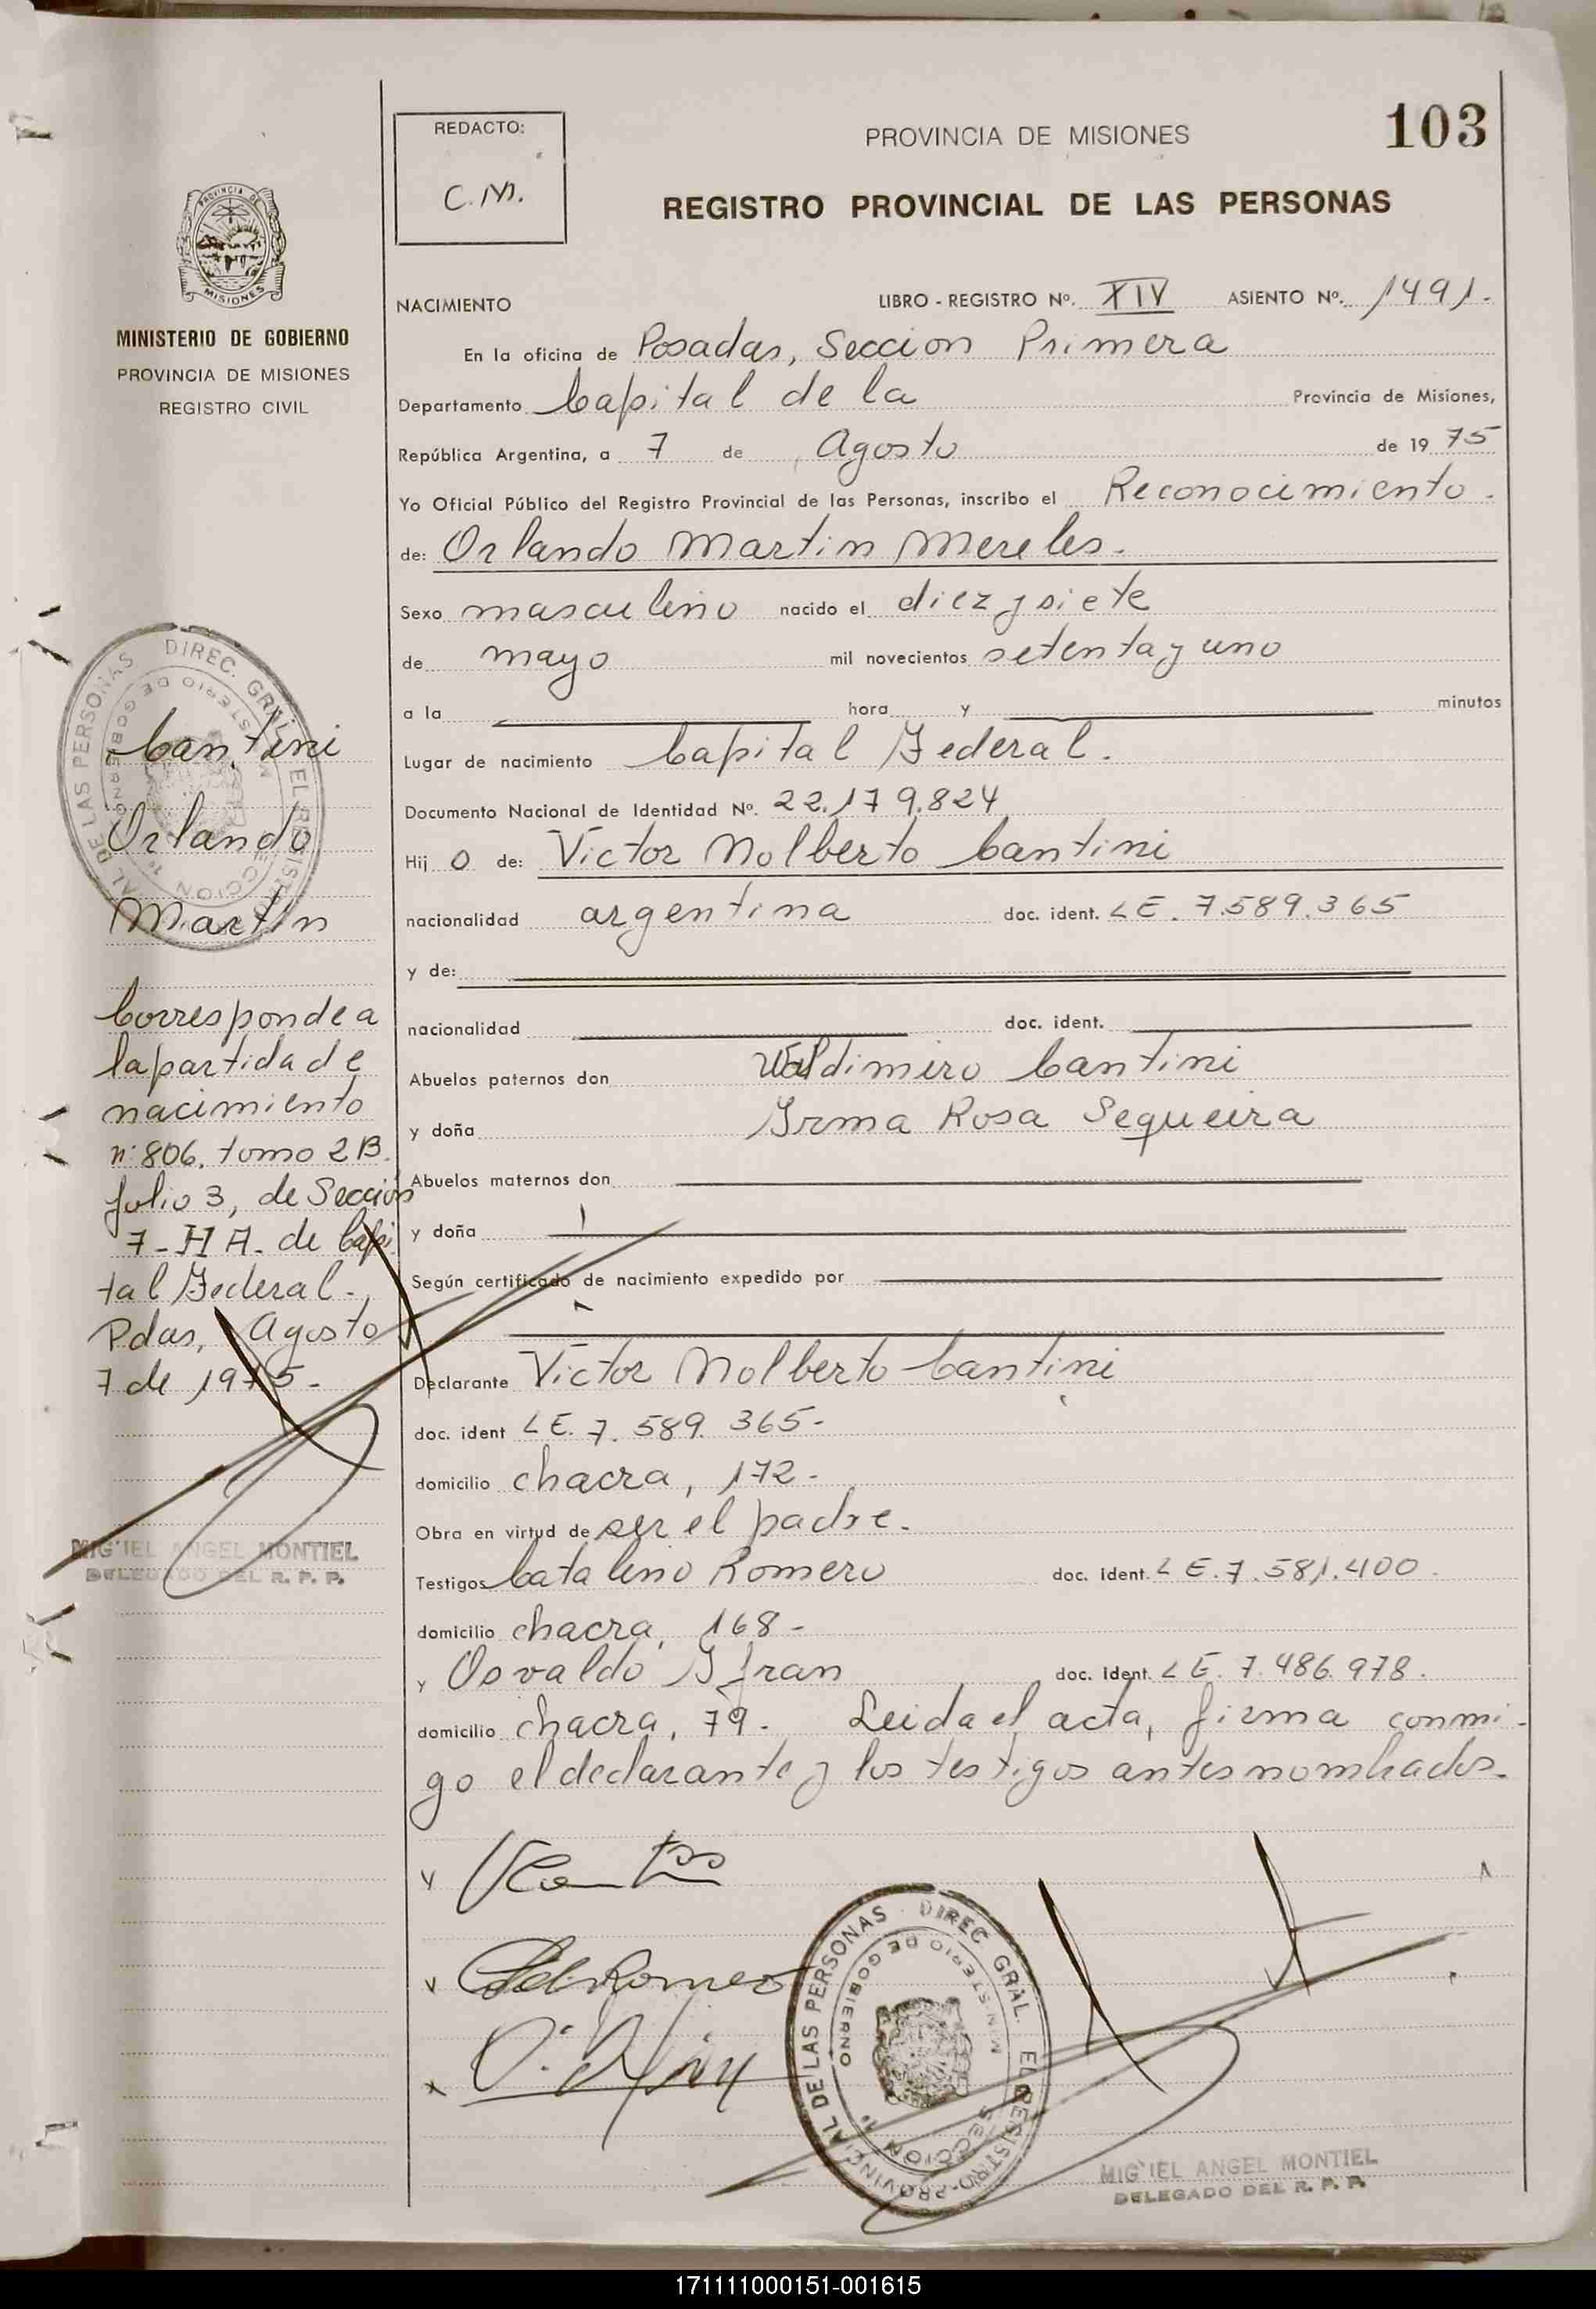 103
REDACTO:
C.M.
PROVINCIA DE MISIONES
REGISTRO PROVINCIAL DE LAS PERSONAS
PROVINCIA DE
MISIONES
MINISTERIO DE GOBIERNO
PROVINCIA DE MISIONES
REGISTRO CIVIL
NACIMIENTO LIBRO - REGISTRO Nº. XIV ASIENTO Nº. 1491.
En la oficina de Posadas, Seccion Primera
Departamento Capital de la Provincia de Misiones,
República Argentina, a 7 de Agosto de 1975
Yo Oficial Público del Registro Provincial de las Personas, inscribo el Reconocimiento.
de: Orlando Martin Mereles.
Sexo masculino nacido el diez y siete
de mayo mil novecientos setenta y uno
a la hora y minutos
Lugar de nacimiento Capital Federal.
Documento Nacional de Identidad Nº. 22.179.824
Hij o de: Victor Nolberto Cantini
nacionalidad argentina doc. ident. LE. 7.589.365
y de:
nacionalidad doc. ident.
Abuelos paternos don Waldimiro Cantini
y doña Irma Rosa Sequeira
Abuelos maternos don
y doña
Según certificado de nacimiento expedido por
Declarante Victor Nolberto Cantini
doc. ident LE. 7. 589. 365-
domicilio chacra, 172-
Obra en virtud de ser el padre.
Testigos Catalino Romero doc. ident. LE. 7.581.400.
domicilio chacra, 168-
y Osvaldo Ifran doc. ident. LE. 7.486.978.
domicilio chacra, 79- Leida el acta, firma conmi-
go el declarante y los testigos antes nombrados.
Cantini
Orlando
Martin
Corresponde a
la partida de
nacimiento
nº 806. tomo 2 B.
folio 3, de Sección
7-HA- de Capi
tal Federal-
Pdas, Agosto
7 de 1975-
MIGUEL ANGEL MONTIEL
DELEGADO DEL R. P. P.
DIREC. GRAL. EL REGISTRO PROVINCIAL DE LAS PERSONAS
MINISTERIO DE GOBIERNO
SECCION 1ª
DIREC. GRAL. EL REGISTRO PROVINCIAL DE LAS PERSONAS
MINISTERIO DE GOBIERNO
SECCION 1ª
MIGUEL ANGEL MONTIEL
DELEGADO DEL R. P. P.
171111000151-001615